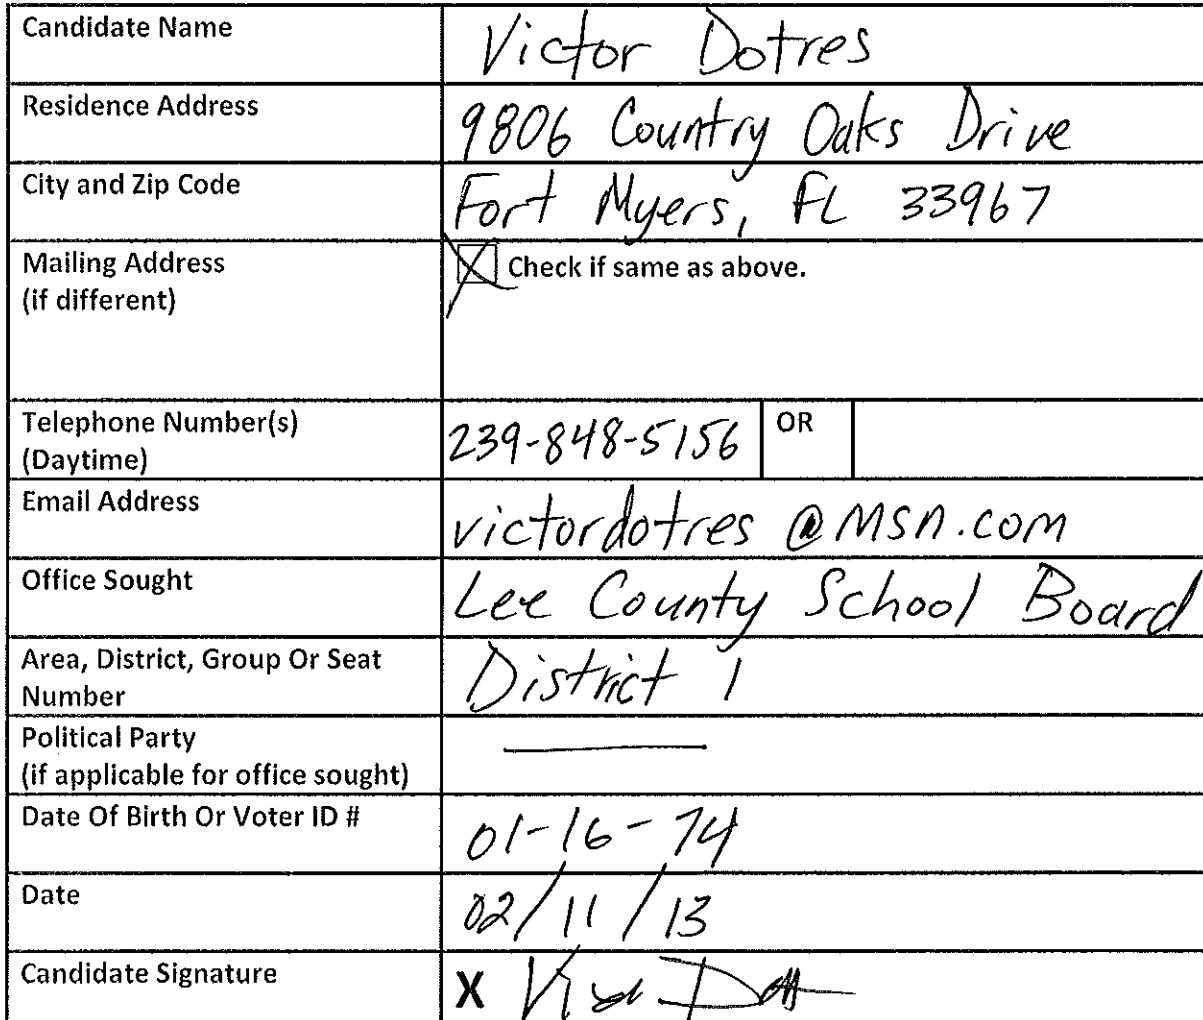 Candidate Name
Victor Dotres
Residence Address
9806 Country Oaks Drive
City and Zip Code
Fort Myers, FL 33967
Mailing Address
(if different)
Check if same as above.
Telephone Number(s)
(Daytime)
239-848-5156
OR
Email Address
victordotres @msn.com
Office Sought
Lee County School Board
Area, District, Group Or Seat
Number
District 1
Political Party
(if applicable for office sought)
Date Of Birth Or Voter ID #
01-16-74
Date
02/11/13
Candidate Signature
X